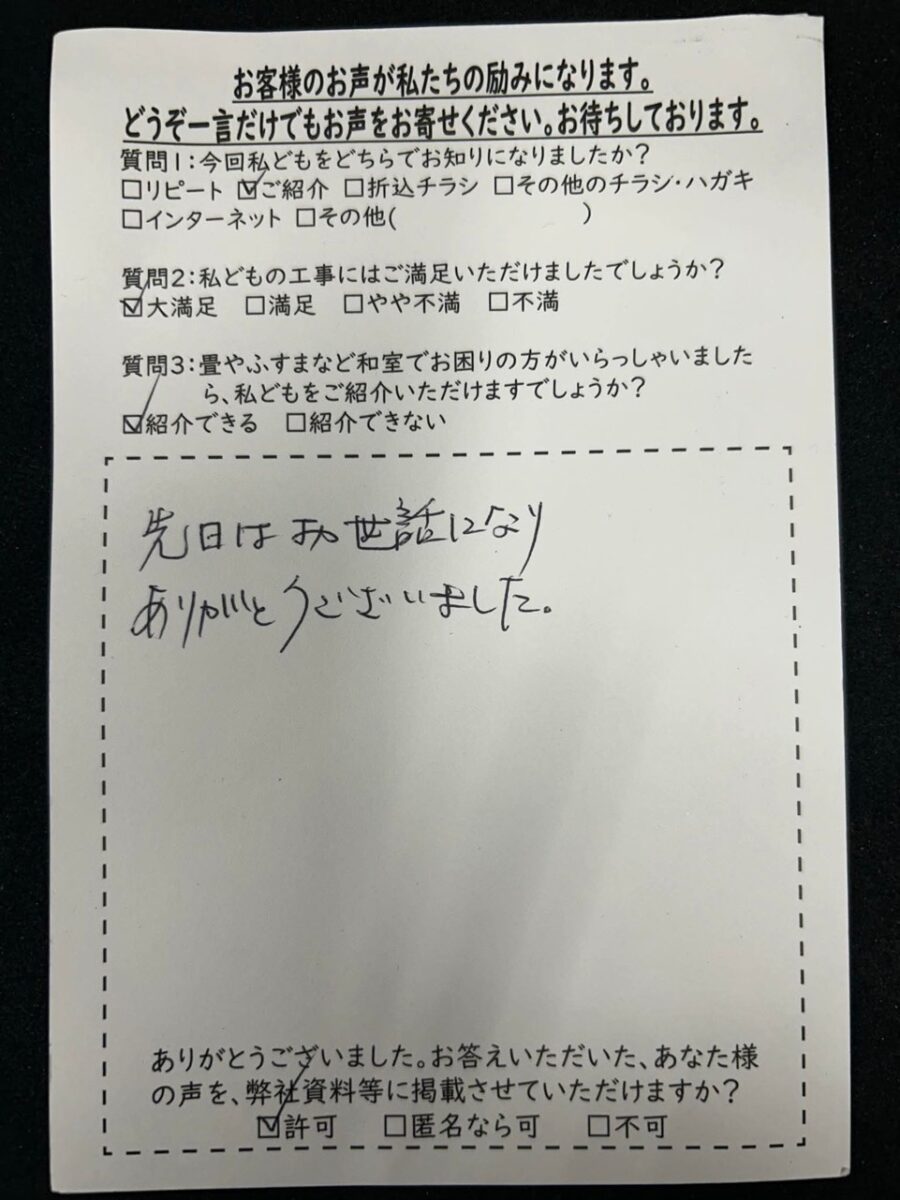 お客様のお声が私たちの励みになります。
どうぞ一言だけでもお声をお寄せください。お待ちしております。
質問1:今回私どもをどちらでお知りになりましたか?
□リピート ☑ご紹介 □折込チラシ □その他のチラシ・ハガキ
□インターネット □その他( )
質問2:私どもの工事にはご満足いただけましたでしょうか?
☑大満足 □満足 □やや不満 □不満
質問3:畳やふすまなど和室でお困りの方がいらっしゃいました
ら、私どもをご紹介いただけますでしょうか?
☑紹介できる □紹介できない
先日はお世話になり
ありがとうございました。
ありがとうございました。お答えいただいた、あなた様
の声を、弊社資料等に掲載させていただけますか?
☑許可 □匿名なら可 □不可